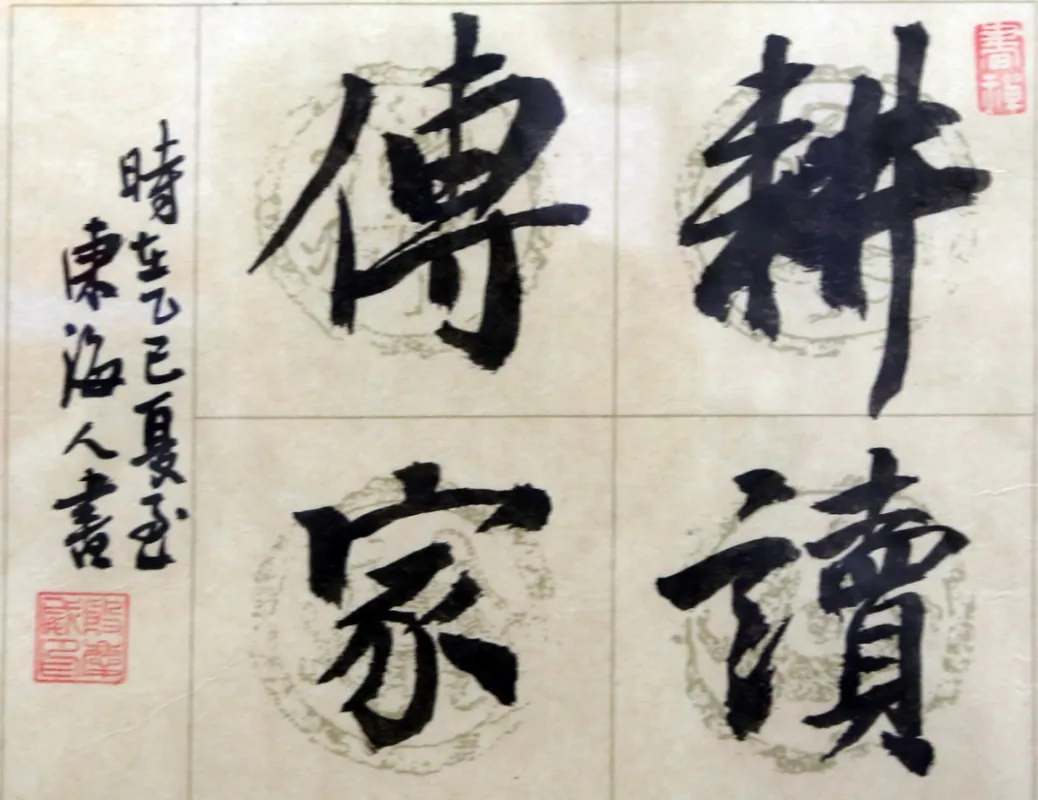 耕讀
傳家
時在乙巳夏至
東海人書